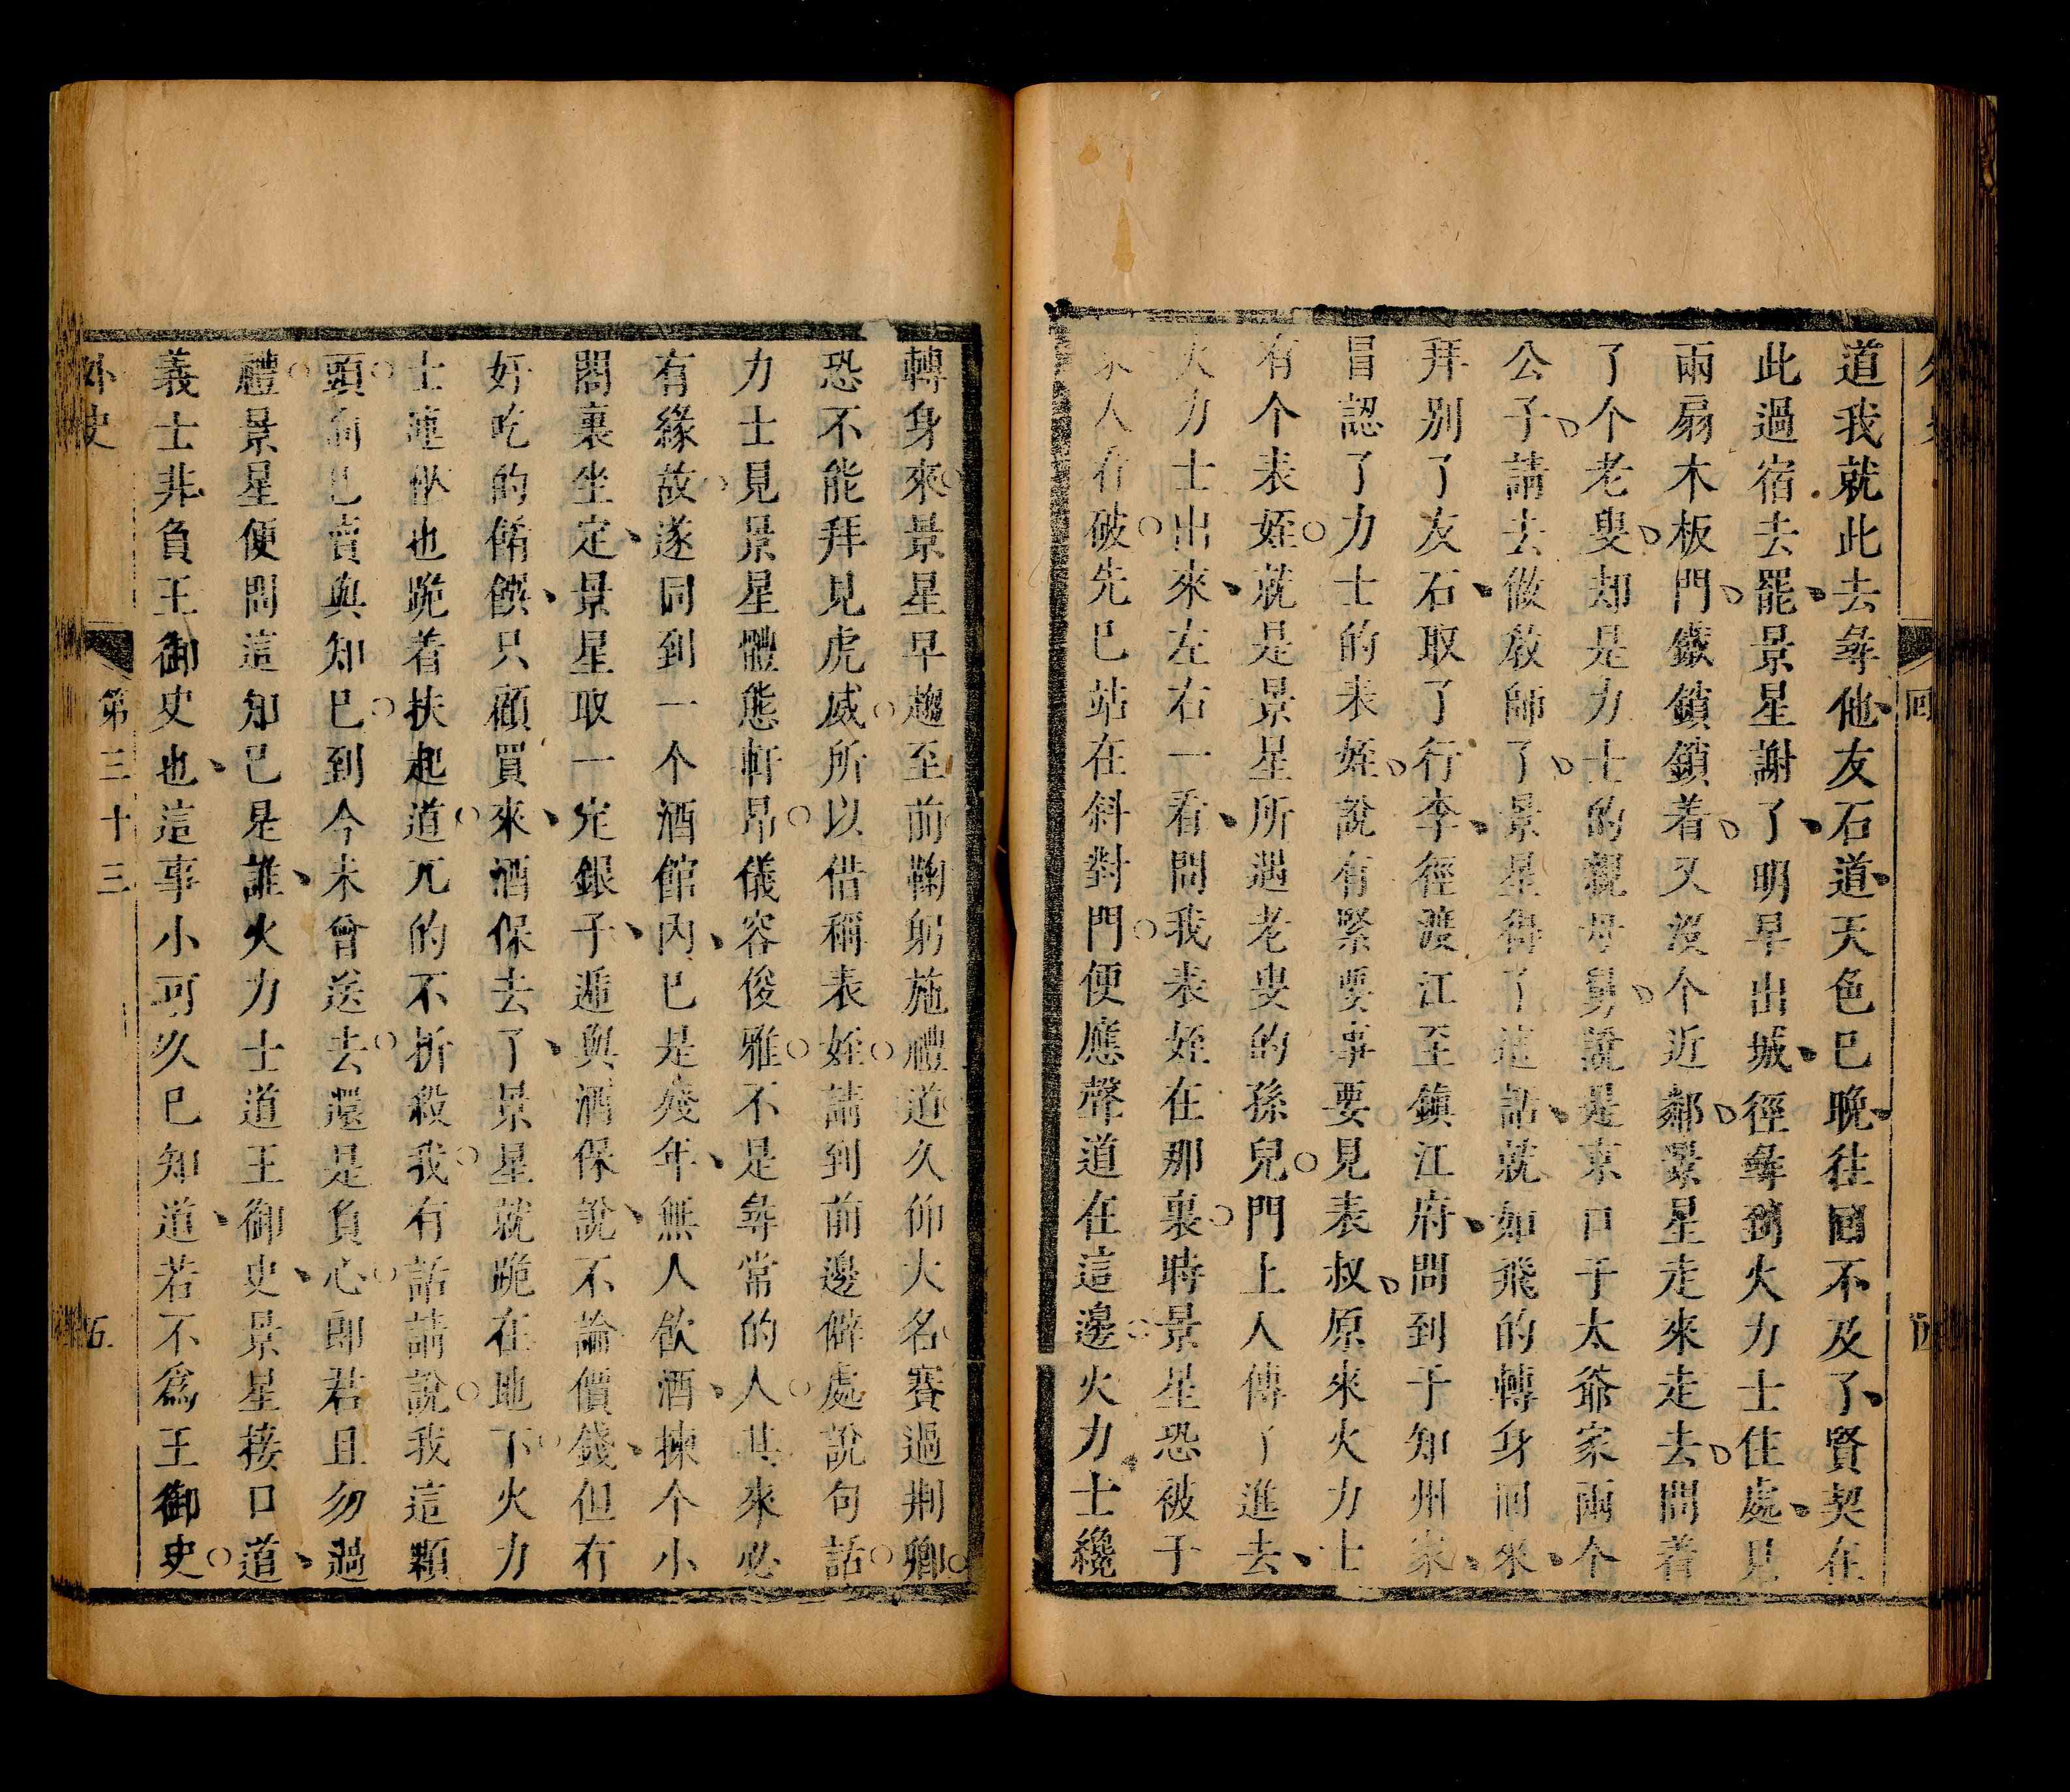 道我就此去尋他友石道天色已晚往回不及了賢契在
此過宿去罷景星謝了明早出城徑尋到火力士住處見
兩扇木板門鐵鎖鎖着又沒个近鄰景星走來走去問着
了个老叟却是力士的親母舅說是京口于太爺家兩个
公子請去做敎師了景星得了這話就如飛的轉身回來
拜别了友石取了行李徑渡江至鎮江府問到于知州家
冒認了力士的表姪說有緊要事要見表叔原來火力士
有个表姪就是景星所遇老叟的孫兒門上人傳了進去
火力士出來左右一看問我表姪在那裏時景星恐被于
家人看破先已站在斜對門便應聲道在這邊火力士纔
轉身來景星早趨至前鞠躬施禮道久仰大名賽過荆卿
恐不能拜見虎威所以借稱表姪請到前邊僻處說句話
力士見景星體態軒昂儀容俊雅不是尋常的人其來必
有緣故遂同到一个酒館內已是殘年無人飮酒揀个小
閣裏坐定景星取一定銀子遞與酒保說不論價錢但有
好吃的餚饌只顧買來酒保去了景星就跪在地下火力
士連忙也跪着扶起道兀的不折殺我有話請說我這顆
頭顱已賣與知已到今未曾送去還是負心郎君且勿過
禮景星便問這知已是誰火力士道王御史景星接口道
義士非負王御史也這事小可久已知道若不爲王御史
外史
第三十三
五